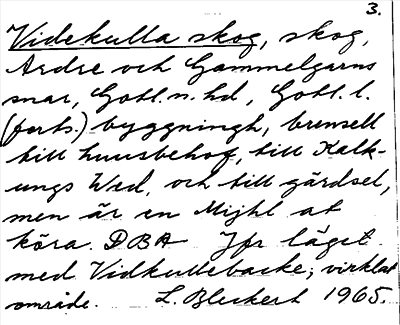 3.
Videkulla skog, skog,
Ardre och Gammelgarns
snar, Gotl. n. hd, Gotl. l.
(forts.) byggningh, brensell
till huusbehof, till Kalk-
ungs Wed, och till gärdsel,
men är en Mijhl at
köra. DBA Jfr läget
med Vidkullebacke; virklat
område. L. Bleckert 1965.